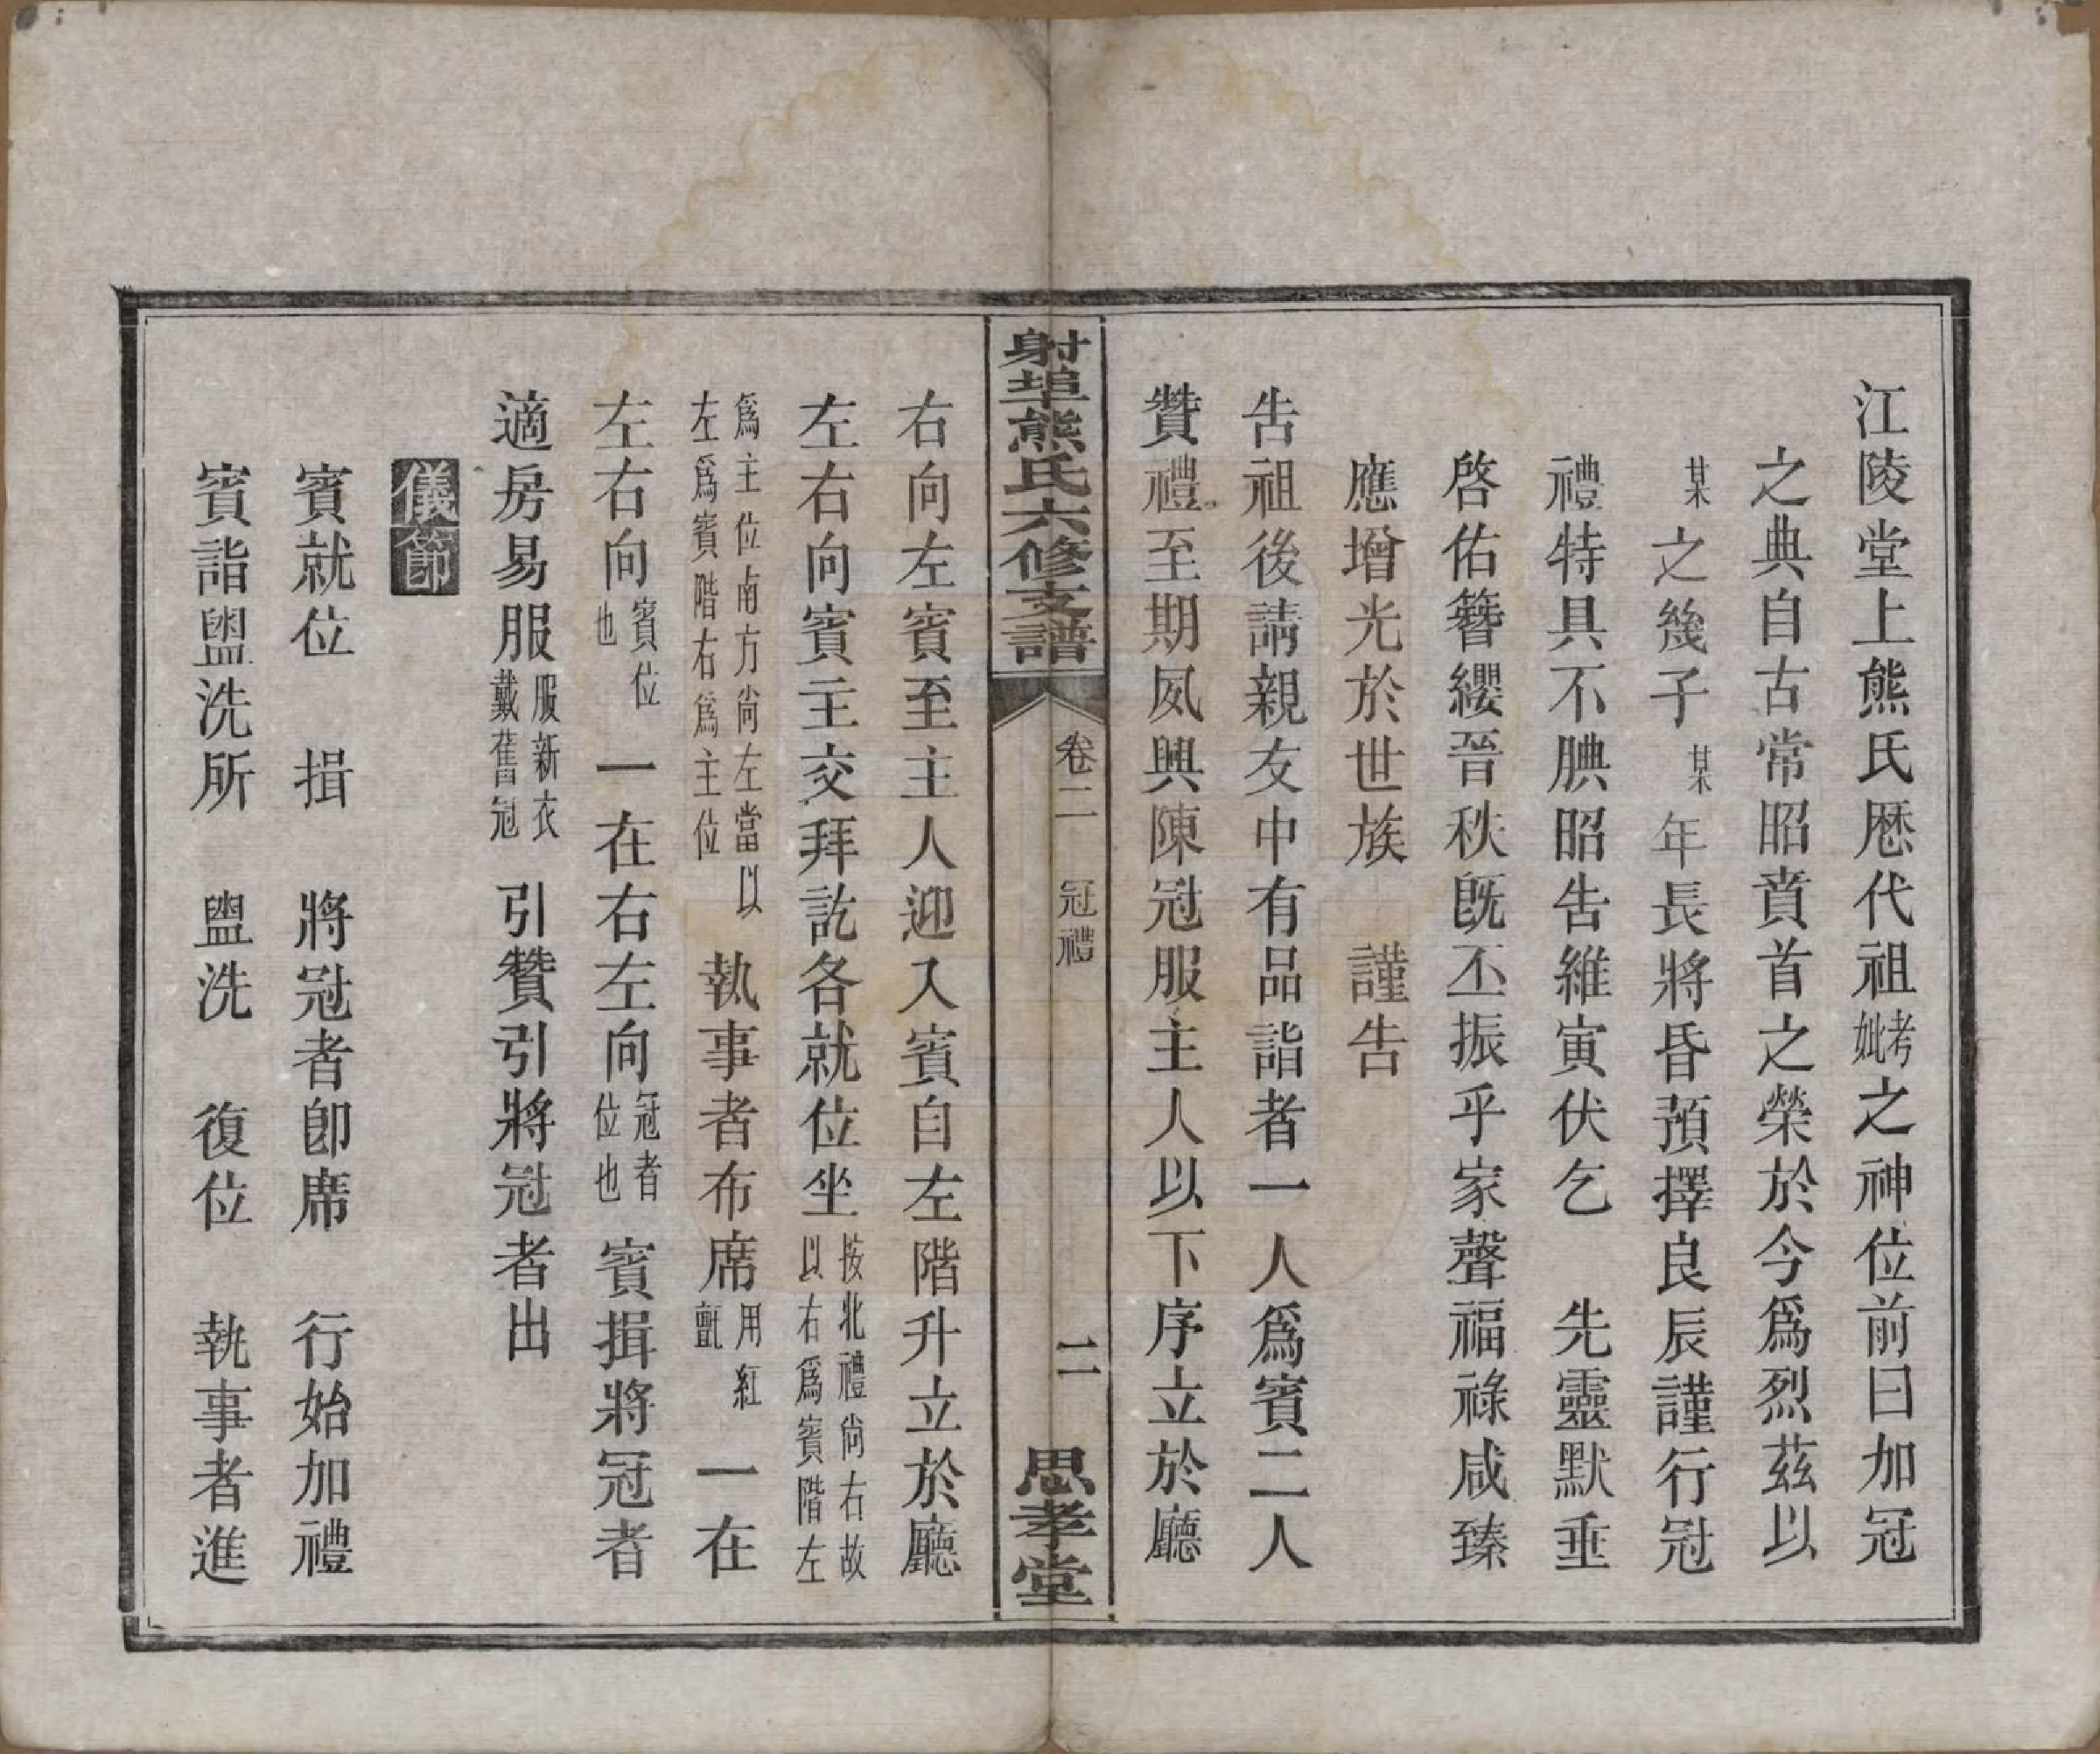 江陵堂上熊氏歷代祖考妣之神位前曰加冠
之典自古常昭賁首之榮於今爲烈茲以
某之幾子某年長將昏預擇良辰謹行冠
禮特具不腆昭告維寅伏乞　先靈默垂
啓佑簪纓晉秩既丕振乎家聲福祿咸臻
應增光於世族　謹告
告祖後請親友中有品詣者一人爲賓二人
贊禮至期夙興陳冠服主人以下序立於廳
射埠熊氏六修支譜　卷二　冠禮　二　思孝堂
右向左賓至主人迎入賓自左階升立於廳
左右向賓主交拜訖各就位坐按北禮尙右故以右爲賓階左
爲主位南方尙左當以左爲賓階右爲主位　執事者布席用紅氈　一在
左右向賓位也　一在右左向冠者位也　賓揖將冠者
適房易服服新衣戴舊冠　引贊引將冠者出
儀節
賓就位　揖　將冠者卽席　行始加禮
賓詣盥洗所　盥洗　復位　執事者進